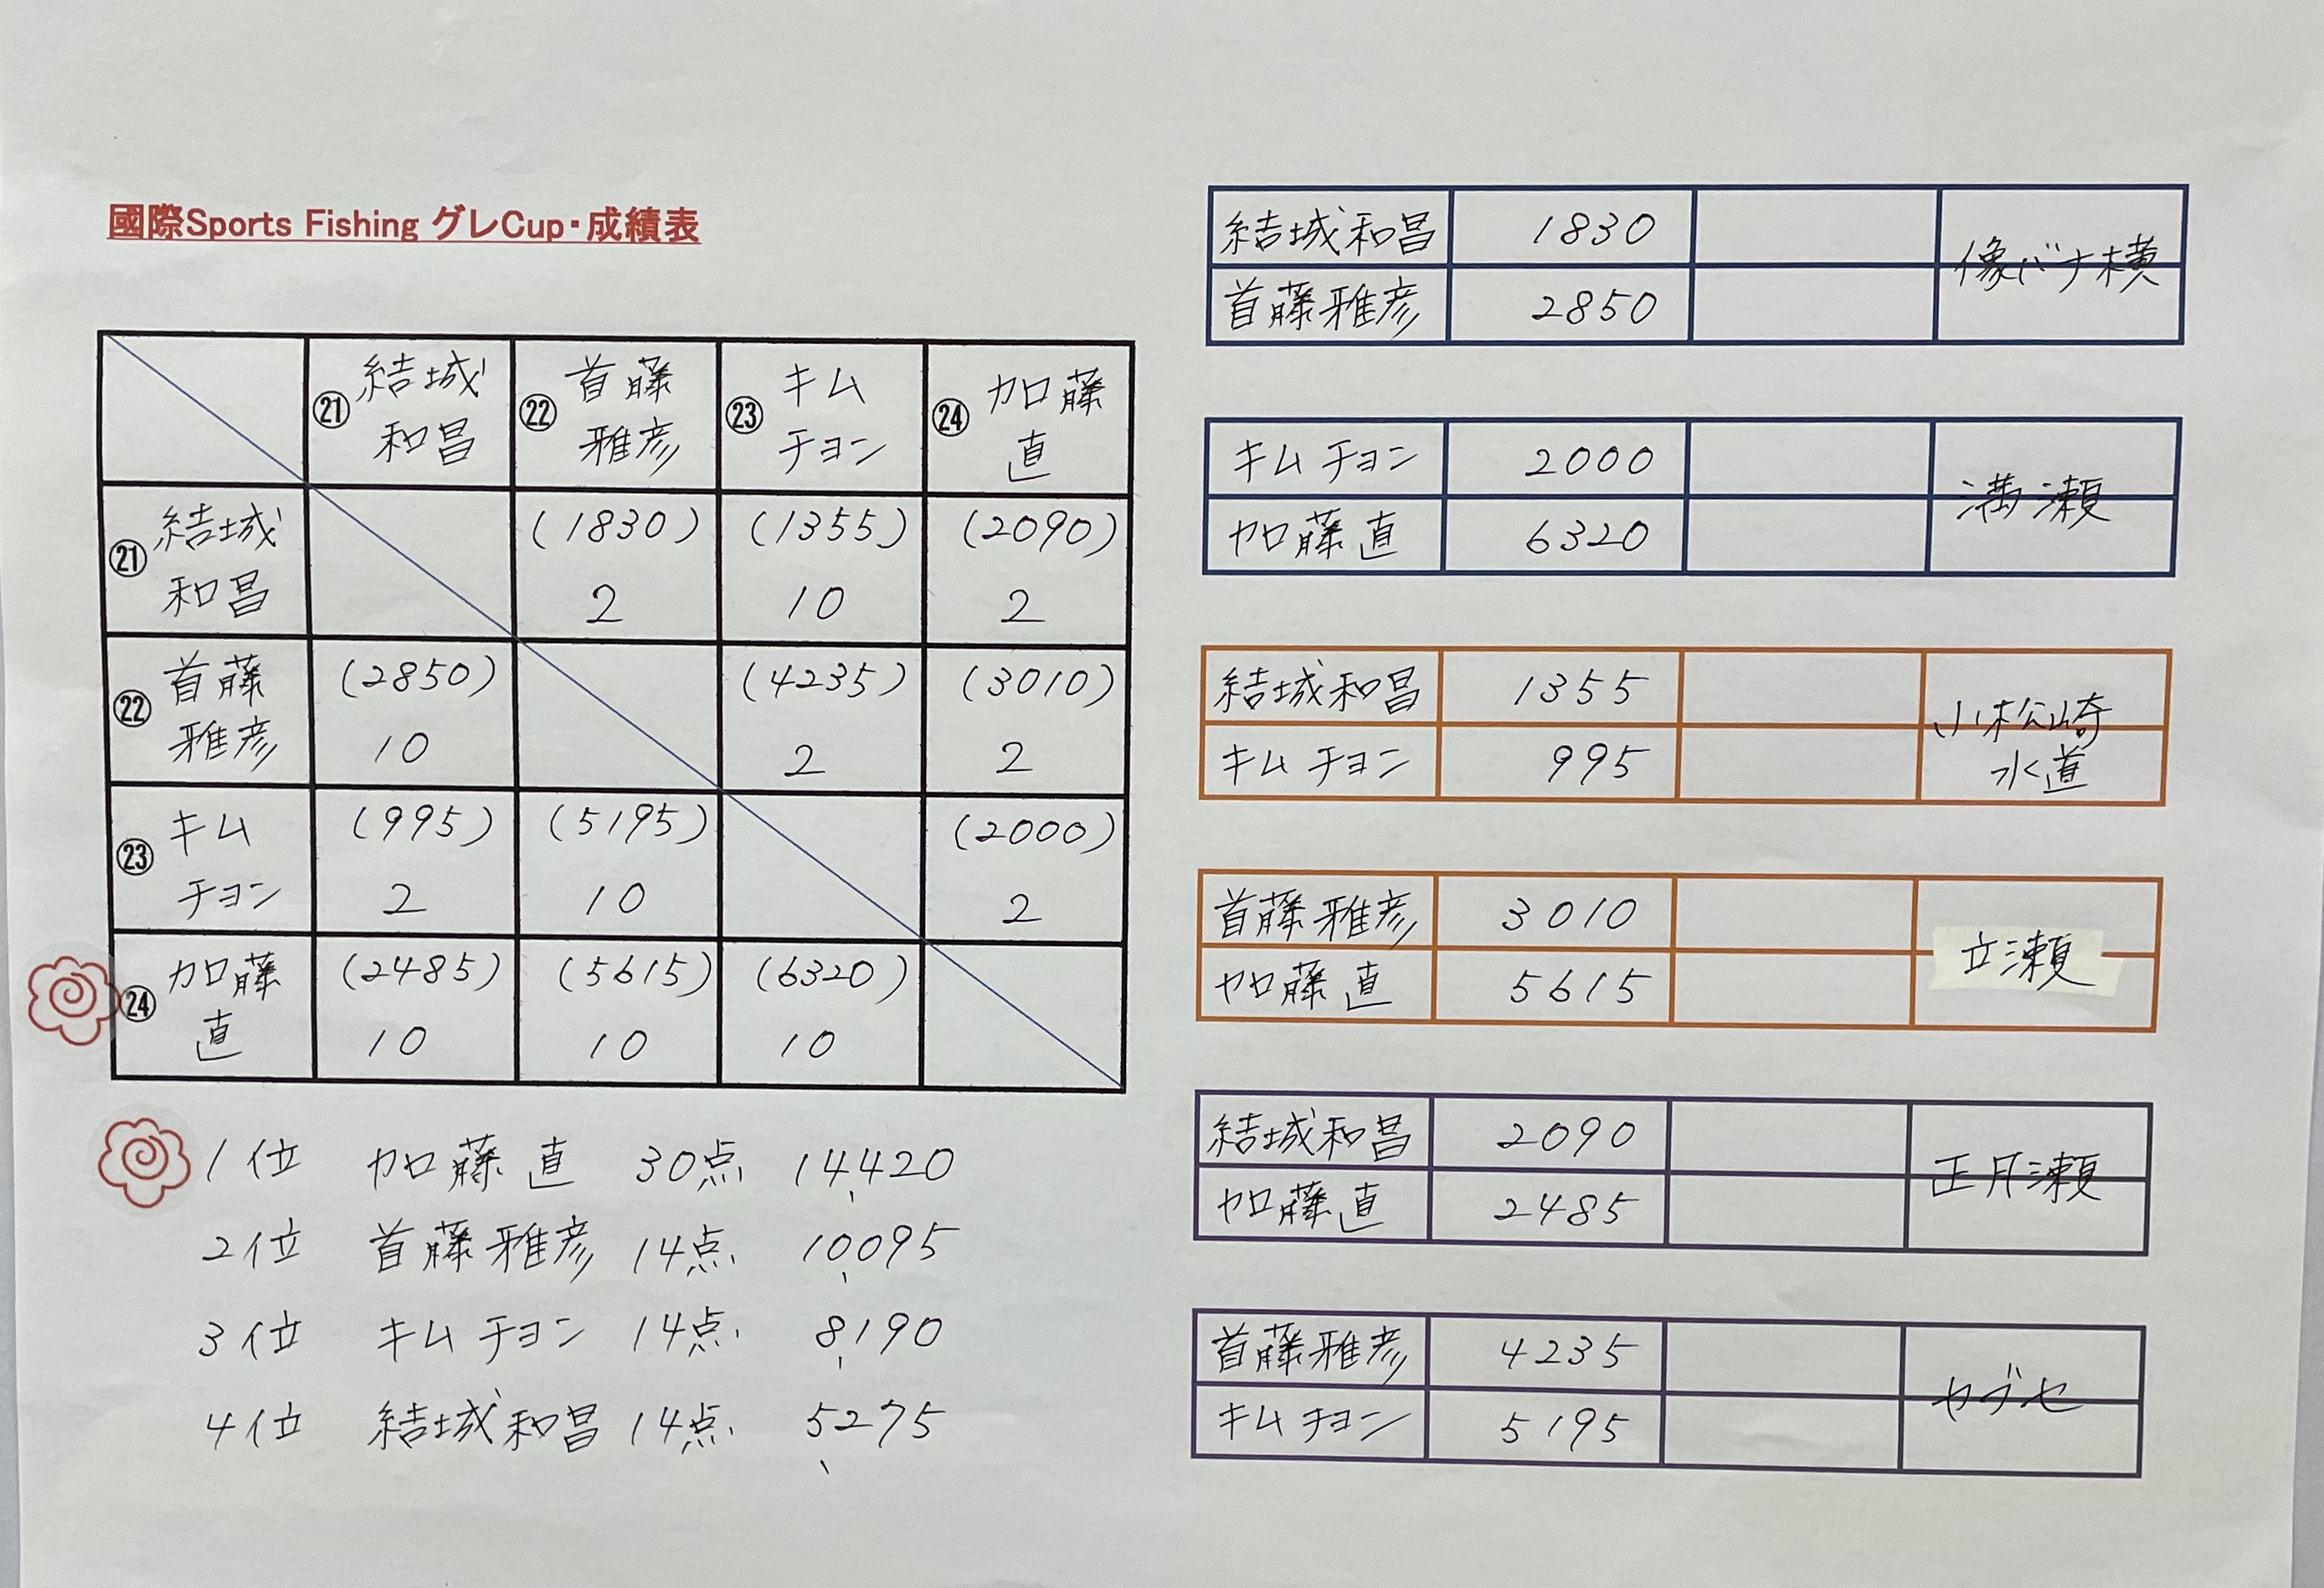 國際Sports Fishing グレCup・成績表
㉑ 結城 和昌 ㉒ 首藤 雅彦 ㉓ キム チョン ㉔ 加藤 直
㉑ 結城 和昌 (1830) 2 (1355) 10 (2090) 2
㉒ 首藤 雅彦 (2850) 10 (4235) 2 (3010) 2
㉓ キム チョン (995) 2 (5195) 10 (2000) 2
㉔ 加藤 直 (2485) 10 (5615) 10 (6320) 10
1位 加藤 直 30点 14,420
2位 首藤雅彦 14点 10,095
3位 キムチョン 14点 8,190
4位 結城和昌 14点 5,275
結城和昌 1830
首藤雅彦 2850
像バナ横
キムチョン 2000
加藤直 6320
満瀬
結城和昌 1355
キムチョン 995
小松崎
水道
首藤雅彦 3010
加藤直 5615
立瀬
結城和昌 2090
加藤直 2485
正月瀬
首藤雅彦 4235
キムチョン 5195
カブセ